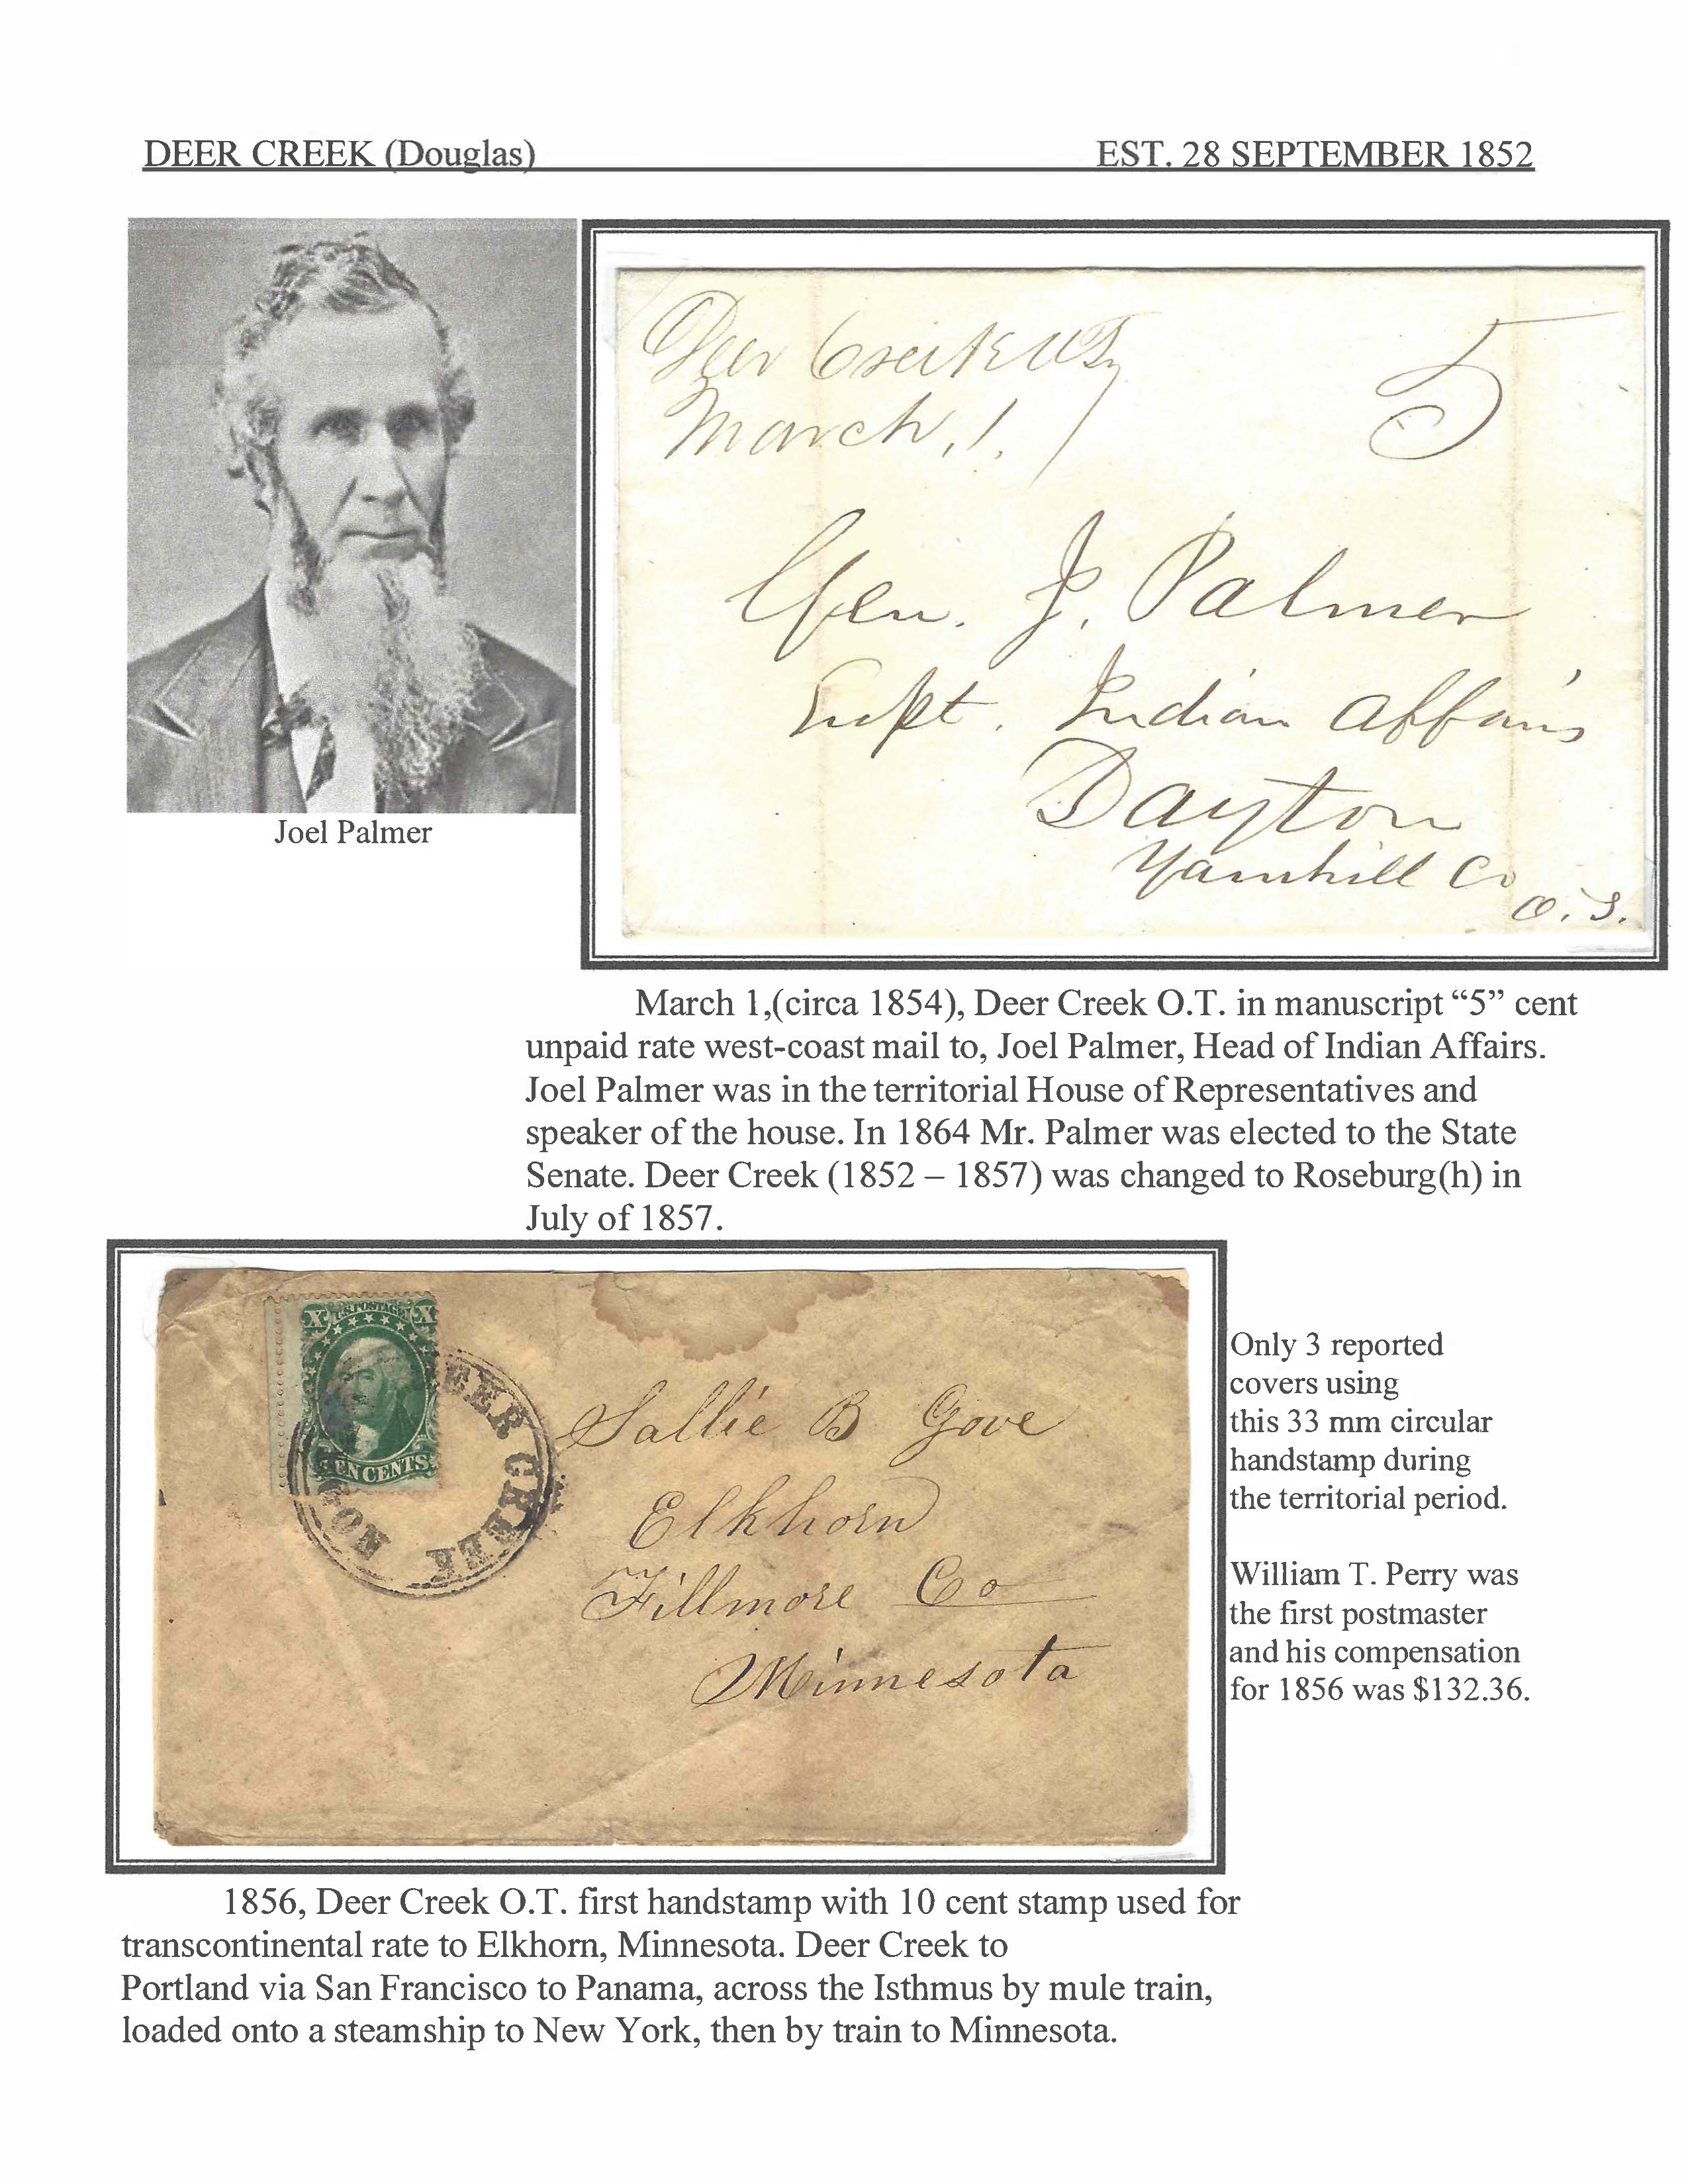 DEER CREEK (Douglas) EST. 28 SEPTEMBER 1852
Deer Creek O.T.
March, 1.
5
Gen. J. Palmer
Supt. Indian Affairs
Dayton
Yamhill Co
O. T.
Joel Palmer
March 1,(circa 1854), Deer Creek O.T. in manuscript “5” cent
unpaid rate west-coast mail to, Joel Palmer, Head of Indian Affairs.
Joel Palmer was in the territorial House of Representatives and
speaker of the house. In 1864 Mr. Palmer was elected to the State
Senate. Deer Creek (1852 – 1857) was changed to Roseburg(h) in
July of 1857.
X U.S. POSTAGE X
TEN CENTS
EER CREEK
Sallie B Gove
Elkhorn
Fillmore Co
Minnesota
Only 3 reported
covers using
this 33 mm circular
handstamp during
the territorial period.
William T. Perry was
the first postmaster
and his compensation
for 1856 was $132.36.
1856, Deer Creek O.T. first handstamp with 10 cent stamp used for
transcontinental rate to Elkhorn, Minnesota. Deer Creek to
Portland via San Francisco to Panama, across the Isthmus by mule train,
loaded onto a steamship to New York, then by train to Minnesota.